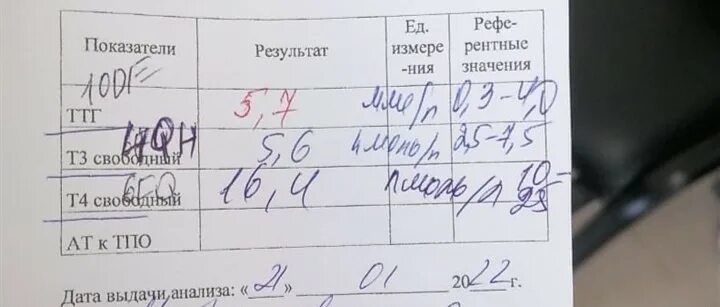 Показатели Результат Ед. измере -ния Рефе- рентные значения
ТТГ 5,7 мме/л 0,3-4,0
Т3 свободный 5,6 пмоль/л 2,5-7,5
Т4 свободный 16,4 пмоль/л 10-25
АТ к ТПО
Дата выдачи анализа: «21» 01 2022 г.